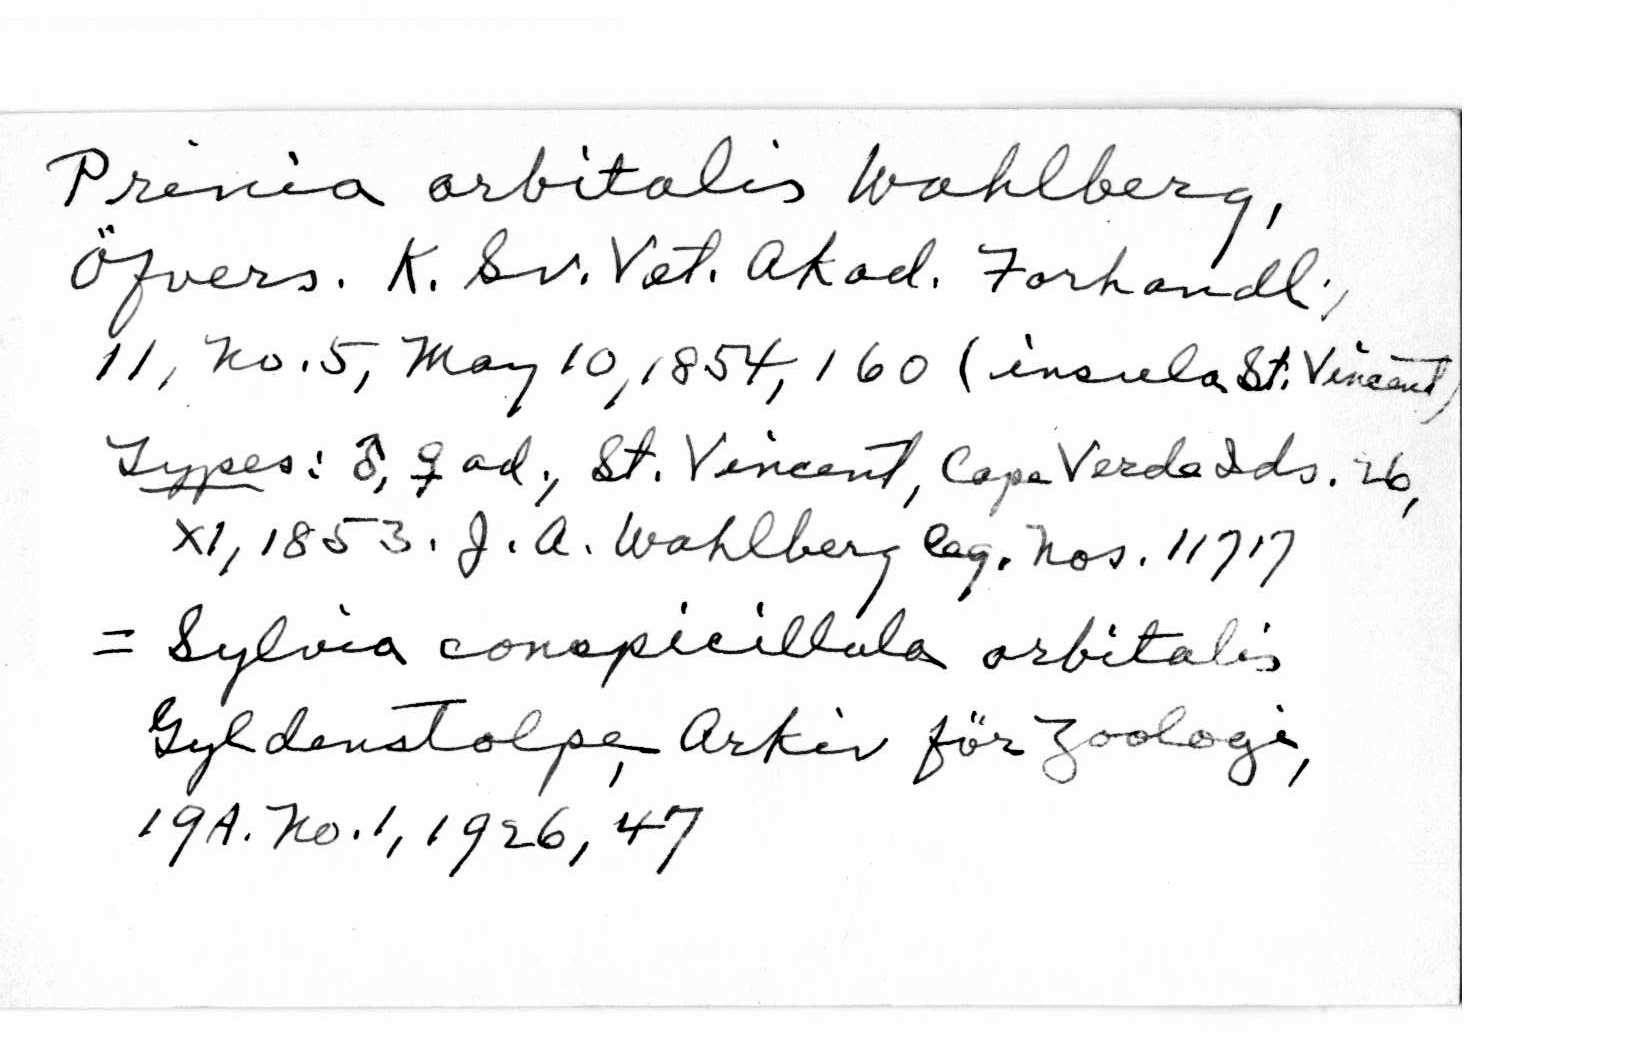 Prinia orbitalis Wahlberg,
Öfvers. K. Sv. Vet. Akad. Forhandl.,
11, No. 5, May 10, 1854, 160 (insula St. Vincent)
Types: ♂, ♀ ad., St. Vincent, Cape Verde Ids. 26,
XI, 1853. J. A. Wahlberg leg. Nos. 11717
= Sylvia conspicillata orbitalis
Gyldenstolpe, Arkiv för Zoologi,
19A. No. 1, 1926, 47